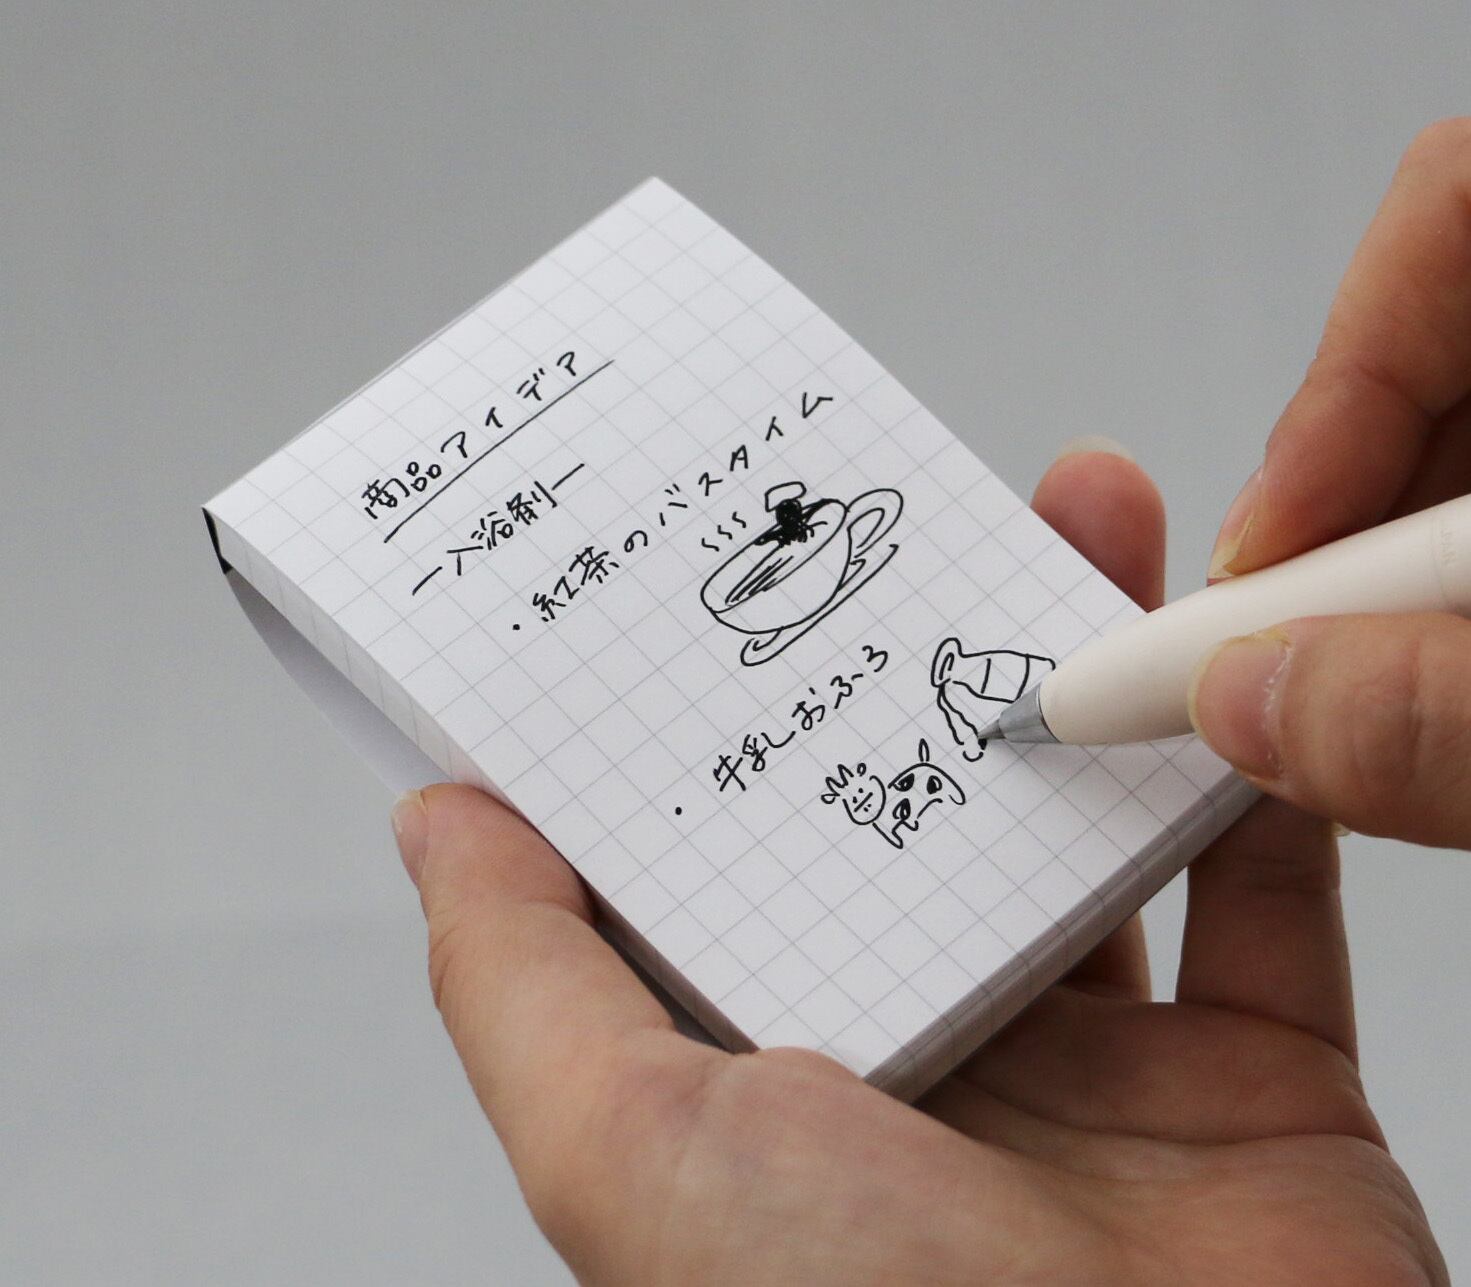 商品アイデア
ー入浴剤ー
・紅茶のバスタイム
・牛乳しおふろ